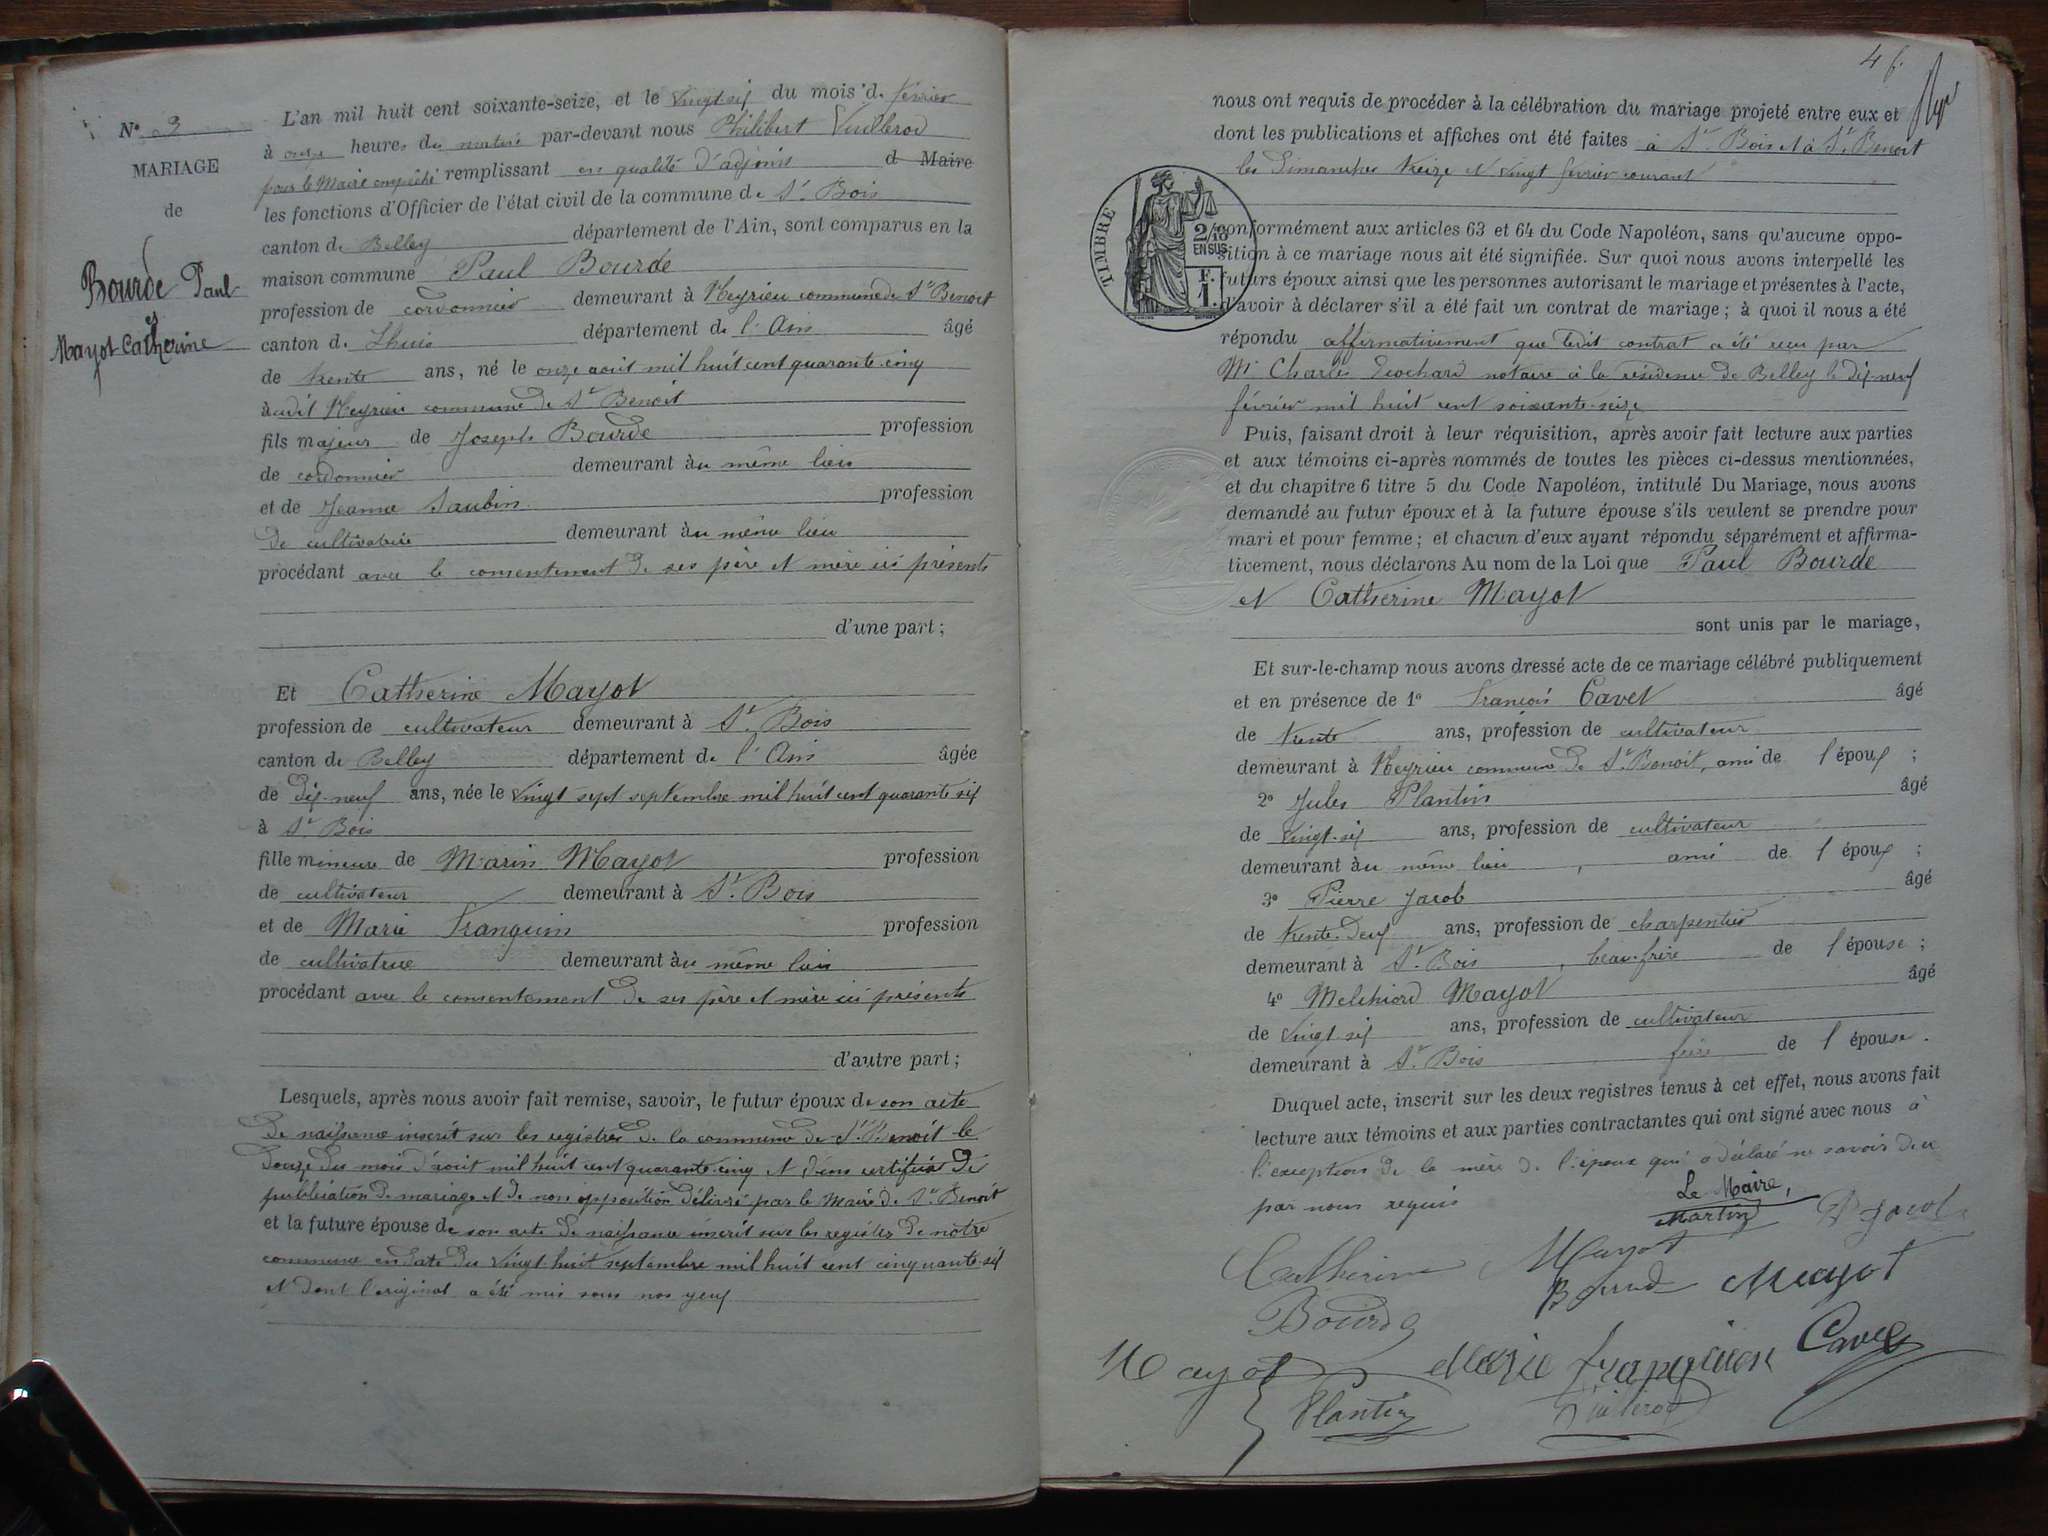 N° 3
MARIAGE
de
Bourde Paul
et
Mayot Catherine
L'an mil huit cent soixante-seize, et le vingt-six du mois de février
à onze heures du matin par-devant nous Philibert Vuillerod
pour le Maire empêché remplissant en qualité d'adjoint d Maire
les fonctions d'Officier de l'état civil de la commune de St. Bois
canton de Belley département de l'Ain, sont comparus en la
maison commune Paul Bourde
profession de cordonnier demeurant à Meyrieu commune de St Benoit
canton de Lhuis département de l'Ain âgé
de trente ans, né le onze aout mil huit cent quarante-cinq
audit Meyrieu commune de St Benoit
fils majeur de Joseph Bourde profession
de cordonnier demeurant au même lieu
et de Jeanne Saubin profession
de cultivatrice demeurant au même lieu
procédant avec le consentement de ses père et mère ici présents
d'une part;
Et Catherine Mayot
profession de cultivateur demeurant à St. Bois
canton de Belley département de l'Ain âgée
de dix-neuf ans, née le vingt sept septembre mil huit cent quarante six
à St. Bois
fille mineure de Marin Mayot profession
de cultivateur demeurant à St. Bois
et de Marie Franquin profession
de cultivatrice demeurant au même lieu
procédant avec le consentement de ses père et mère ici présents
d'autre part;
Lesquels, après nous avoir fait remise, savoir, le futur époux de son acte
de naissance inscrit sur les registres de la commune de St Benoit le
douze du mois d'août mil huit cent quarante-cinq et d'un certificat de
publication de mariage et de non opposition délivré par le Maire de St Benoit
et la future épouse de son acte de naissance inscrit sur les registres de notre
commune en date du vingt huit septembre mil huit cent cinquante-six
et dont l'original a été mis sous nos yeux
46.
nous ont requis de procéder à la célébration du mariage projeté entre eux et
dont les publications et affiches ont été faites à St Bois et à St Benoit
les Dimanches treize et vingt février courant
TIMBRE
2/10
EN SUS
F.
1.
conformément aux articles 63 et 64 du Code Napoléon, sans qu'aucune oppo-
sition à ce mariage nous ait été signifiée. Sur quoi nous avons interpellé les
futurs époux ainsi que les personnes autorisant le mariage et présentes à l'acte,
d'avoir à déclarer s'il a été fait un contrat de mariage; à quoi il nous a été
répondu affirmativement que ledit contrat a été reçu par
Me Charles notaire à la résidence de Belley le dix-neuf
février mil huit cent soixante-seize
Puis, faisant droit à leur réquisition, après avoir fait lecture aux parties
et aux témoins ci-après nommés de toutes les pièces ci-dessus mentionnées,
et du chapitre 6 titre 5 du Code Napoléon, intitulé Du Mariage, nous avons
demandé au futur époux et à la future épouse s'ils veulent se prendre pour
mari et pour femme; et chacun d'eux ayant répondu séparément et affirma-
tivement, nous déclarons Au nom de la Loi que Paul Bourde
et Catherine Mayot
sont unis par le mariage,
Et sur-le-champ nous avons dressé acte de ce mariage célébré publiquement
et en présence de 1° François Cavet âgé
de trente ans, profession de cultivateur
demeurant à Meyrieu commune de St Benoit, ami de l'époux;
2° Jules Plantin âgé
de vingt-six ans, profession de cultivateur
demeurant au même lieu, ami de l'époux;
3° Pierre Jacob âgé
de trente-deux ans, profession de charpentier
demeurant à St. Bois, beau-frère de l'épouse;
4° Melchiord Mayot âgé
de vingt-six ans, profession de cultivateur
demeurant à St. Bois frère de l'épouse.
Duquel acte, inscrit sur les deux registres tenus à cet effet, nous avons fait
lecture aux témoins et aux parties contractantes qui ont signé avec nous à
l'exception de la mère de l'époux qui a déclaré ne savoir de ce
par nous requis
Le Maire,
Martin P Jacob
Catherine Mayot
Bourde Mayot
Bourde
Mayot Marie franquin Cavet
Plantin Vuillerod